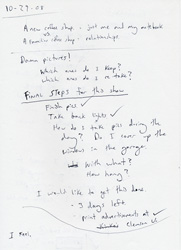 10-27-08
A new coffee shop - just me and my notebook
vs
A familiar coffee shop - relationships.
Damn pictures!
Which ones do I keep?
Which ones do I re take?
Final Steps for this show
Finish pics ✓
Take back lights ✓
How do I take pics during the
day? Do I cover up the
windows in the garage.
With what?
How hang?
I would like to get this done.
- 3 days left
- print advertisements at ✓
I feel,